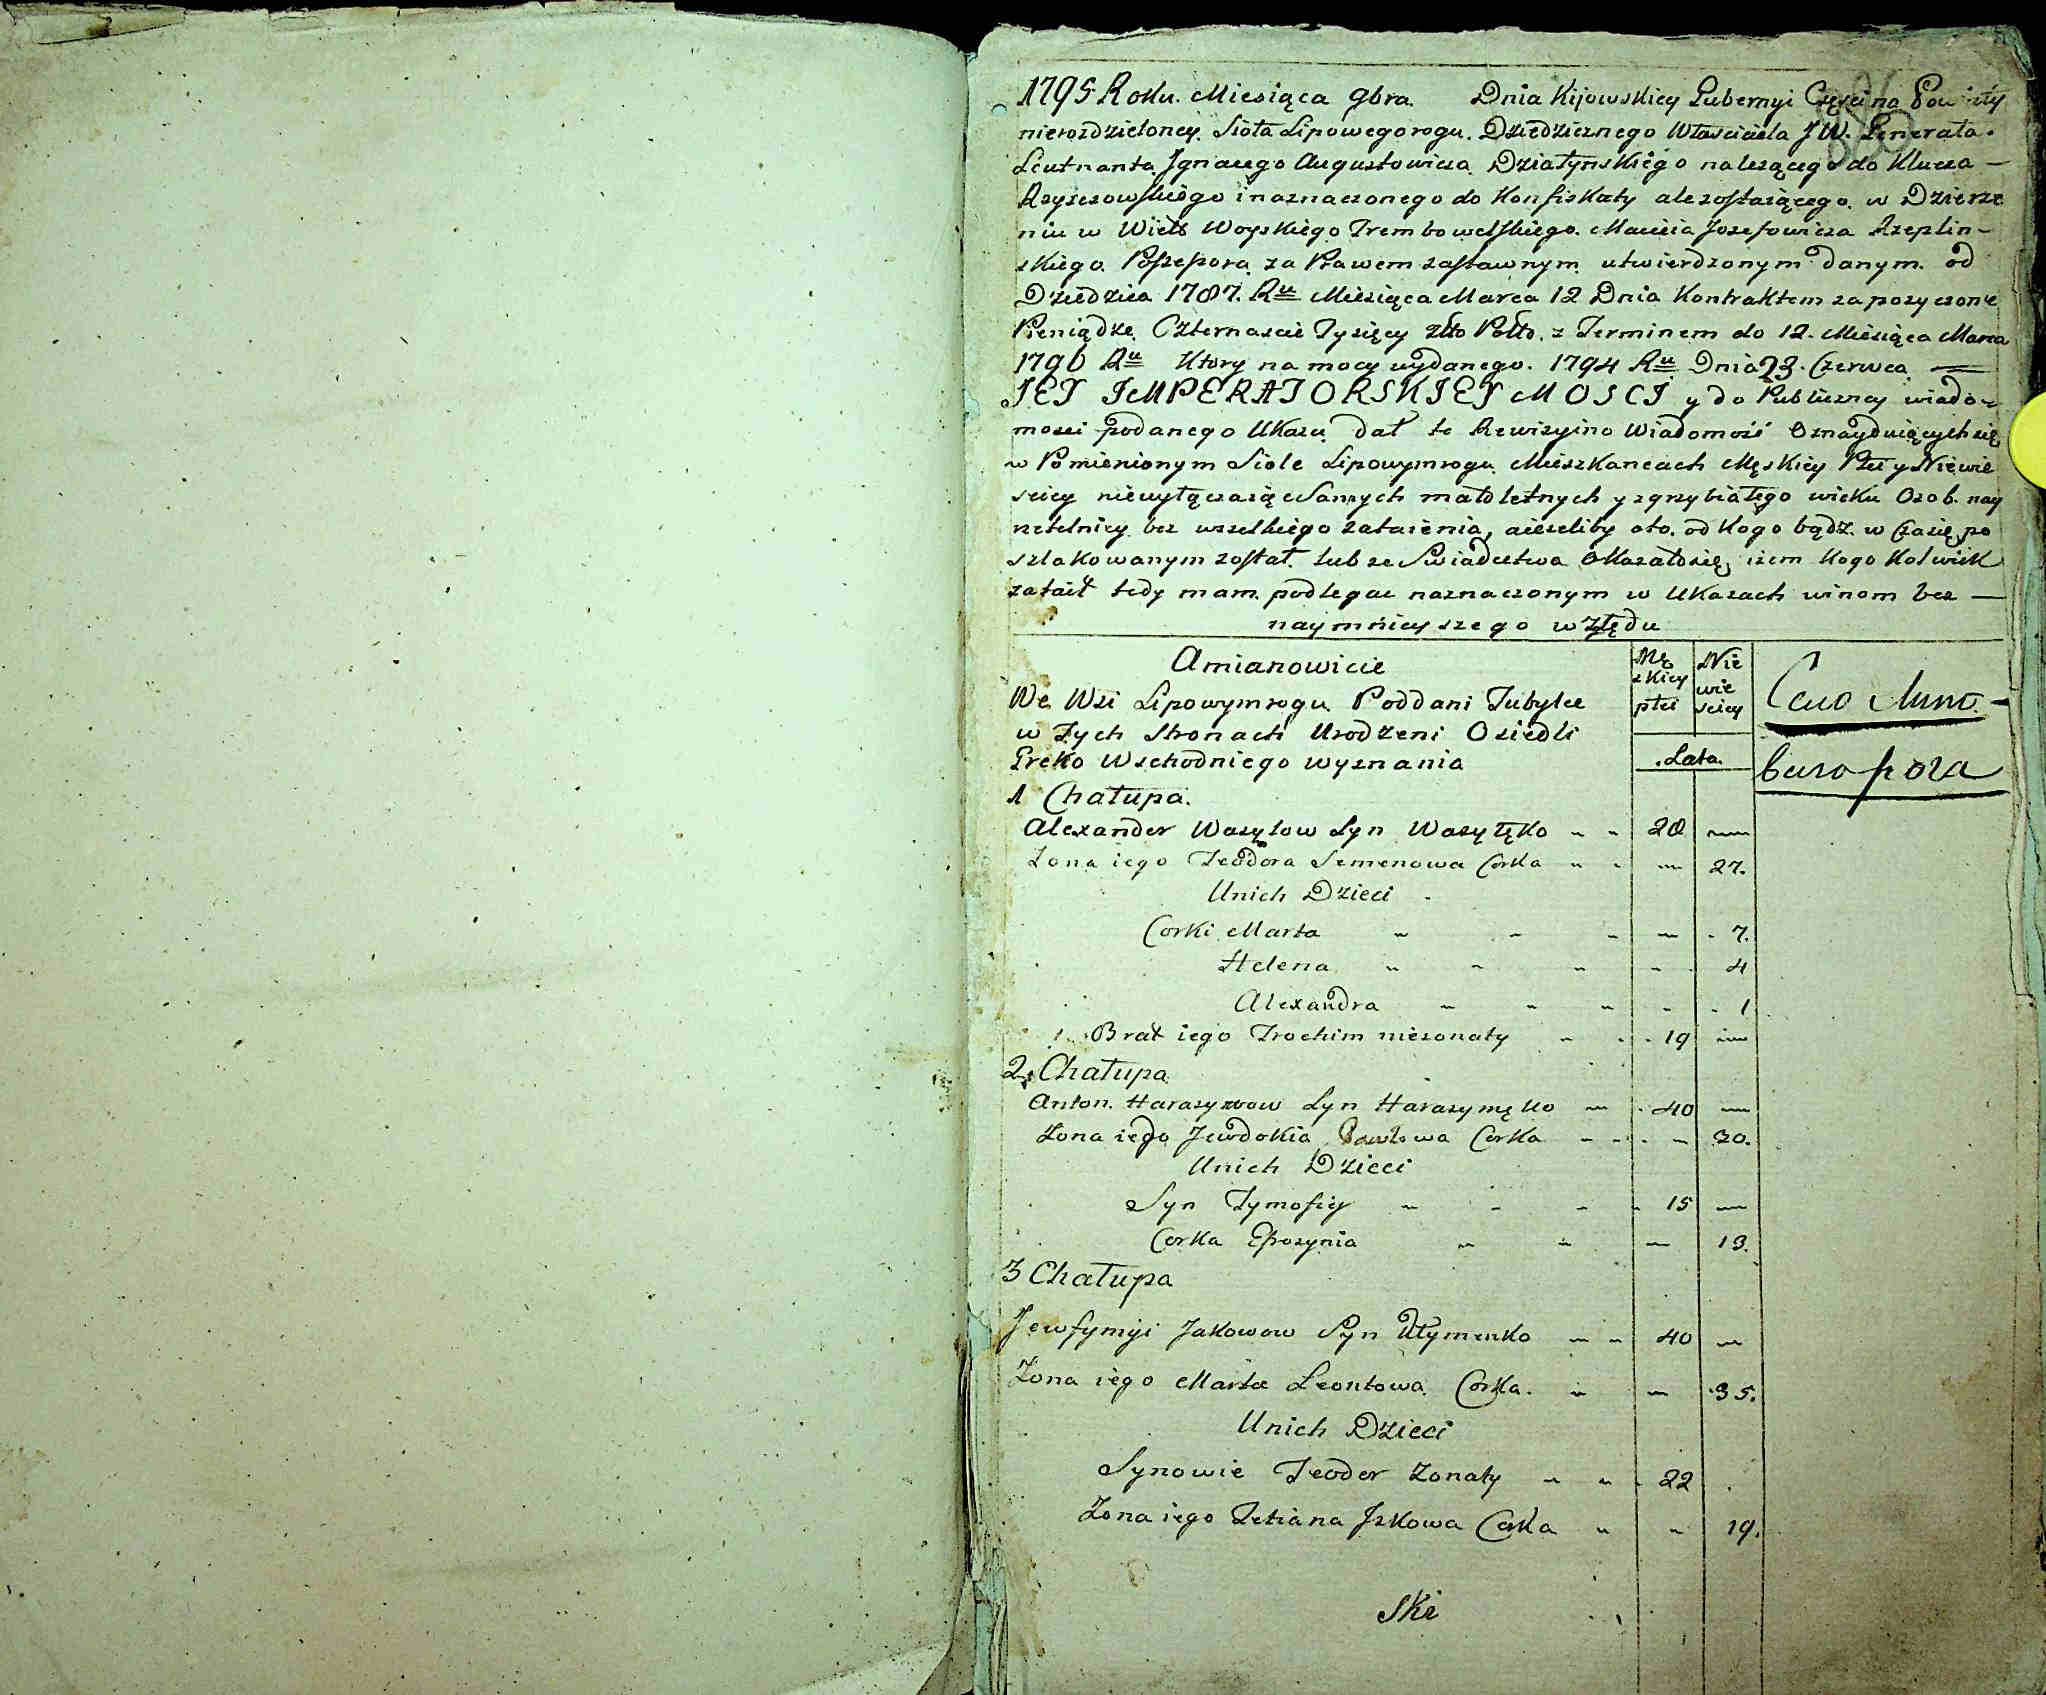 1795 Roku. Miesiąca 9bra. Dnia Kijowskiey Gubernyi Częscina Powiaty
nierozdzieloney. Sioła Lipowegorogu. Dziedzicznego Własciciela JW. Generała.
Leutnanta Ignacego Augustowicza Działynskiego należącego do Klucza —
Rzyszczowskiego inaznaczonego do Konfiskaty alezostaiącego. w Dzierże
niu w Woyskiego Trembowelskiego. Macieia Jozefowicza Rzeplin-
skiego. Possesora za Prawem zastawnym utwierdzonym danym. od
Dziedzica 1787. Ru Miesiąca Marca 12 Dnia Kontraktem za pozyczone
Pieniądze. Czternascie Tysięcy Złto Polto. z Terminem do 12. Miesiąca Marca
1796 Ru Ktory na mocy wydanego. 1794 Ru Dnia 23. Czerwca —
JEJ IMPERATORSKIEJ MOSCI y do Publiczney wiado-
mosci podanego Ukazu dał te Rewizyino Wiadomość Oznayduiącychsię
w Pomienionym Siole Lipowymrogu Mieszkancach Męskiey Płci y Niewie
sciey niewyłączaiąc Samych małoletnych y zgrzybiałego wieku Osob. nay
rzetelniey bez wszelkiego zataienia, aieżeliby oto. od kogo bądz. w Czasie po
szlakowanym został. lub ze Swiadectwa Okazałosię, iżem kogo kolwiek
zataił tedy mam podlegac naznaczonym w Ukazach winom bez —
naymnieyszego względu
Amianowicie
Mę
skiey
płci
Nie
wie
sciey
Село Липо-
We Wsi Lipowymrogu Poddani Tubylce
w Tych Stronach Urodzeni Osiedli
Greko Wschodniego wyznania
.Lata.
вигорога
1 Chałupa.
Alexander Wasylow Syn Wasylęko " " 28 —
Zona iego Teodora Semenowa Corka " " — 27.
Unich Dzieci .
Corki Marta " " " — . 7.
Helena " " " " 4
Alexandra " " " . . 1
Brat iego Trochim nieżonaty " . . 19 —
2. Chałupa
Anton. Harasymow Syn Harasymęko — . 40 —
Zona iego Jewdokia Pawłowa Corka " " . — 30.
Unich Dzieci
Syn Tymofiey " " " " 15 —
Corka Eprozynia " " — 13.
3 Chałupa
Jewfymyi Jakowow Syn Kłymenko — " 40 —
Zona iego Marta Leontowa Corka. " — .35.
Unich Dzieci
Synowie Teodor Zonaty " " . 22 .
Zona iego Tetiana Jzkowa Corka " " 19.
Ske